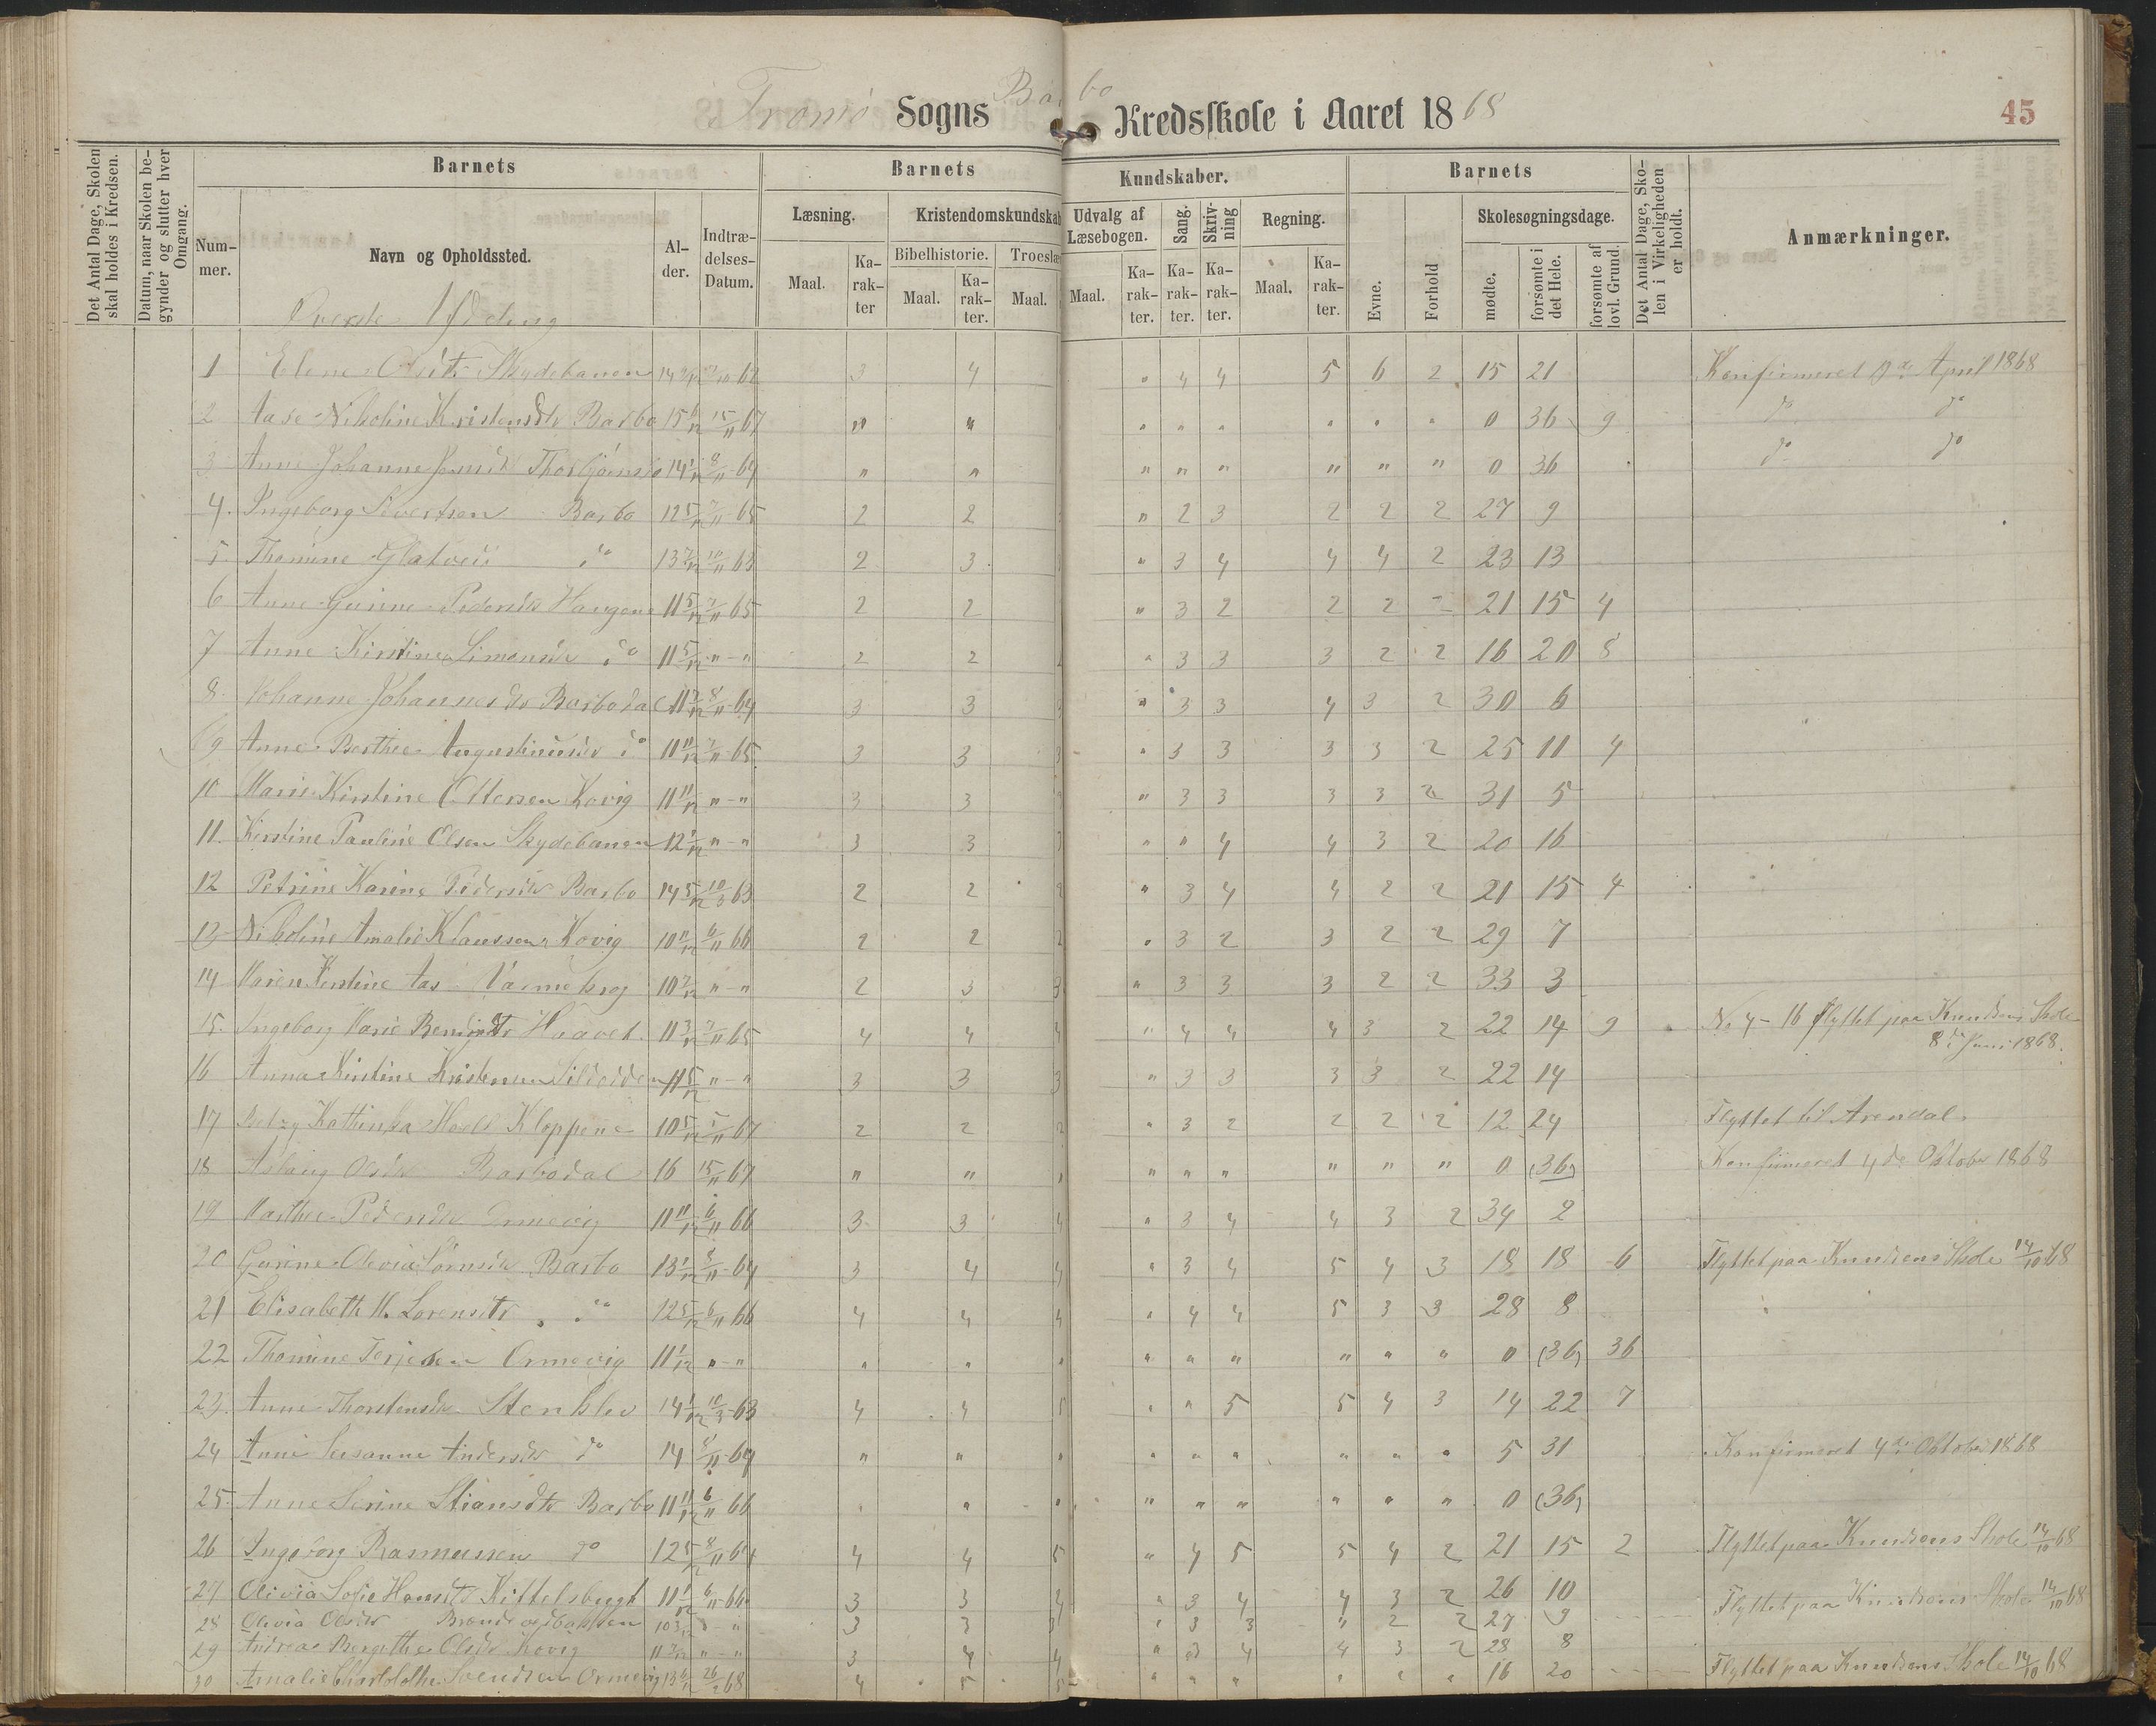 Tromø Sogns Barbo Kredsskole i Aaret 1868
45
Det Antal Dage, Skolen skal holdes i Kredsen.
Datum, naar Skolen begynder og slutter hver Omgang.
Barnets
Barnets
Kundskaber.
Barnets
Det Antal Dage, Skolen i Virkeligheden er holdt.
Anmærkninger.
Nummer.
Navn og Opholdssted.
Alder.
Indtrædelses-Datum.
Læsning.
Kristendomskundskab
Udvalg af Læsebogen.
Sang.
Skrivning
Regning.
Evne.
Forhold
Skolesøgningsdage.
Bibelhistorie.
Troeslær
Maal.
Karakter
Maal.
Karakter.
Maal.
Maal.
Karakter.
Karakter.
Karakter.
Maal.
Karakter.
mødte.
forsømte i det Hele.
forsømte af lovl. Grund.
Øverste Afdeling
1 Skydebanen 3 4 " 4 4 5 6 2 15 21 Konfirmeret April 1868
2 Aase Nikoline Kristensdtr Barbo 15 6/12 15/11 67 " " " " " " " " 0 36 9 do do
3 Anne Johanne 14 1/12 8/11 64 " " " " " " " " 0 36 do do
4. Ingeborg Sivertsen Barbo 12 5/12 7/11 65 2 2 " 2 3 2 2 2 27 9
5. Thomine do 13 7/12 10/11 63 2 3 " 3 4 4 4 2 23 13
6 Anne Gurine Pedersdtr Haugene 11 5/12 7/11 65 2 2 " 3 2 2 2 - 21 15 4
7 Anne Kirstine Simonsdtr do 11 5/12 " - " 2 2 " 3 3 3 2 2 16 20 8
8. Johanne Johannesdtr Barbodal 11 7/12 8/11 64 3 3 " 3 3 4 3 2 30 6
9 Anne Berthe Augustinusdtr do 11 11/12 7/11 65 3 3 " 3 3 3 3 2 25 11 4
10 Marie Kirstine Ottersen Kovig 11 11/12 " - " 3 3 " 3 3 3 3 2 31 5
11. Kirstine Pauline Olsen Skydebanen 12 1/12 " - " 3 3 " " 4 4 3 2 20 16
12 Petrine Karine Pedersdtr Barbo 14 5/12 10/3 63 2 2 2 " 3 4 4 2 2 21 15 4
13 Nikoline Amalie Klaussen Kovig 10 11/12 6/11 66 2 2 2 " 3 2 3 2 2 29 7
14 Maren Kirstine Aas 10 7/12 " - " 2 3 3 " 3 3 3 2 2 33 3
15. Ingeborg Marie 11 3/12 7/11 65 4 4 4 " 4 4 4 3 2 22 14 9 No 4 - 16 flyttet paa Knudsens Skole 8de Juni 1868.
16 Anna Kirstine Kristensen 11 5/12 " - " 3 3 3 " 3 3 3 3 2 22 14
17 Kathinka Kloppene 10 5/12 67 2 2 2 " 3 2 2 2 2 12 24 Flyttet til Arendal
18 Aslaug Olsdtr Barbodal 16 15/11 67 " " " " " " " " " 0 (36) Konfirmeret 4de Oktober 1868
19 Marthe Pedersdtr Ormevig 11 11/12 6/11 66 3 3 4 " 3 4 4 3 2 34 2
20 Gurine Olevia Barbo 13 1/12 8/11 64 3 4 4 " 3 4 5 4 3 18 18 6 Flyttet paa Knudsens Skole 14/10 68
21 Elisabeth M. Lorensdtr do 12 5/12 6/11 66 4 4 4 " 4 4 5 3 3 28 8
22 Thomine Terjesen Ormevig 11 1/12 " - " " " " " " " " " " 0 (36) 36
23. Anne Thorstensdtr Stenklev 14 1/12 10/3 63 4 4 5 " " 5 5 4 3 14 22 7
24 Anne Susanne Andersdtr do 14 8/11 64 " " " " " " " " " 5 31 Konfirmeret 4de Oktober 1868
25. Anne Serine Stiansdtr Barbo 11 11/12 6/11 66 " " " " " " " " " 0 (36)
26 Ingeborg Rasmussen do 12 5/12 8/11 64 4 4 5 " 4 5 5 4 2 21 15 2 Flyttet paa Knudsens Skole 14/10 68
27 Olivia Sofie Hansdtr Kittelsbugt 11 1/12 6/11 66 3 3 4 " 3 4 4 3 2 26 10 Flyttet paa Knudsens Skole 14/10 68
28 Olivia Olsdtr 10 3/12 " - " 3 3 3 " 3 3 " 2 2 27 9
29 Andrea Bergithe Olsdtr Kovig 11 7/12 " - " 3 4 4 " 3 4 4 3 2 28 8
30 Amalie Charlotthe Svendsen Ormevig 13 6/12 26/2 68 4 5 5 " " " " " " 16 20 Flyttet paa Knudsens Skole 14/10 68